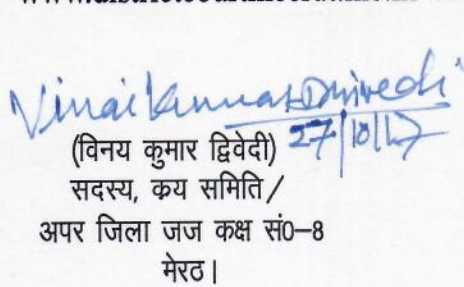 Vinai Kumar Dwivedi
27/10/17
(विनय कुमार द्विवेदी)
सदस्य, कय समिति/
अपर जिला जज कक्ष सं0–8
मेरठ।